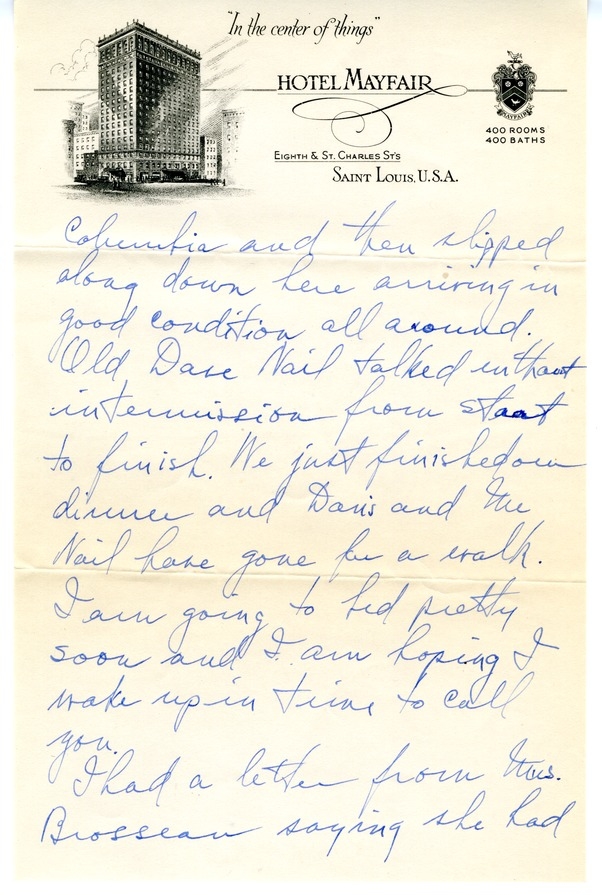 "In the center of things"
HOTEL MAYFAIR
MAYFAIR
400 ROOMS
400 BATHS
EIGHTH & ST. CHARLES ST'S
SAINT LOUIS, U.S.A.
Columbia and then slipped
along down here arriving in
good condition all around.
Old Dave Nail talked without
intermission from start
to finish. We just finished our
dinner and Davis and Mr
Nail have gone for a walk.
I am going to bed pretty
soon and I am hoping I
wake up in time to call
you.
I had a letter from Mrs.
Brosseau saying she had